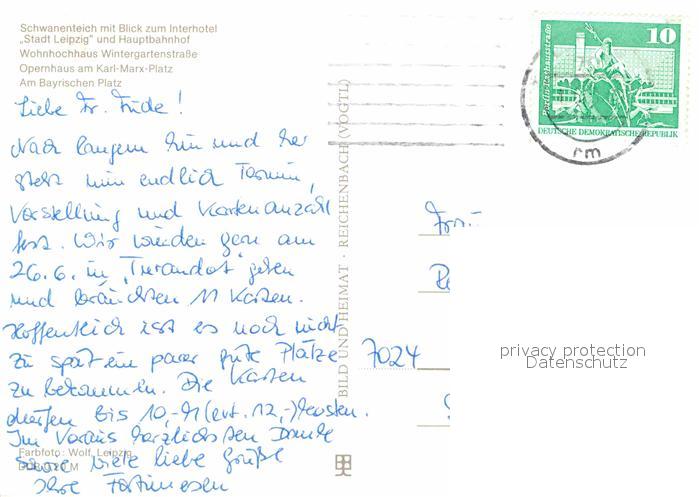 Schwanenteich mit Blick zum Interhotel
„Stadt Leipzig" und Hauptbahnhof
Wohnhochhaus Wintergartenstraße
Opernhaus am Karl-Marx-Platz
Am Bayrischen Platz
Liebe Fr. Trude!
Nach langem hin und her
steht nun endlich Termin,
Vorstellung und Kartenanzahl
fest. Wir würden gern am
26.6. in „Turandot" gehen
und bräuchten 11 Karten.
Hoffentlich ist es noch nicht
zu spät ein paar gute Plätze
zu bekommen. Die Karten
dürfen bis 10,-M (evt. 12,-) kosten.
Im Voraus herzlichsten Dank
sowie viele liebe Grüße
Ihre
Farbfoto: Wolf, Leipzig
BILD UND HEIMAT · REICHENBACH (VOGTL)
10
Berlin-Rathausstraße
DEUTSCHE DEMOKRATISCHE REPUBLIK
rm
7024
privacy protection
Datenschutz